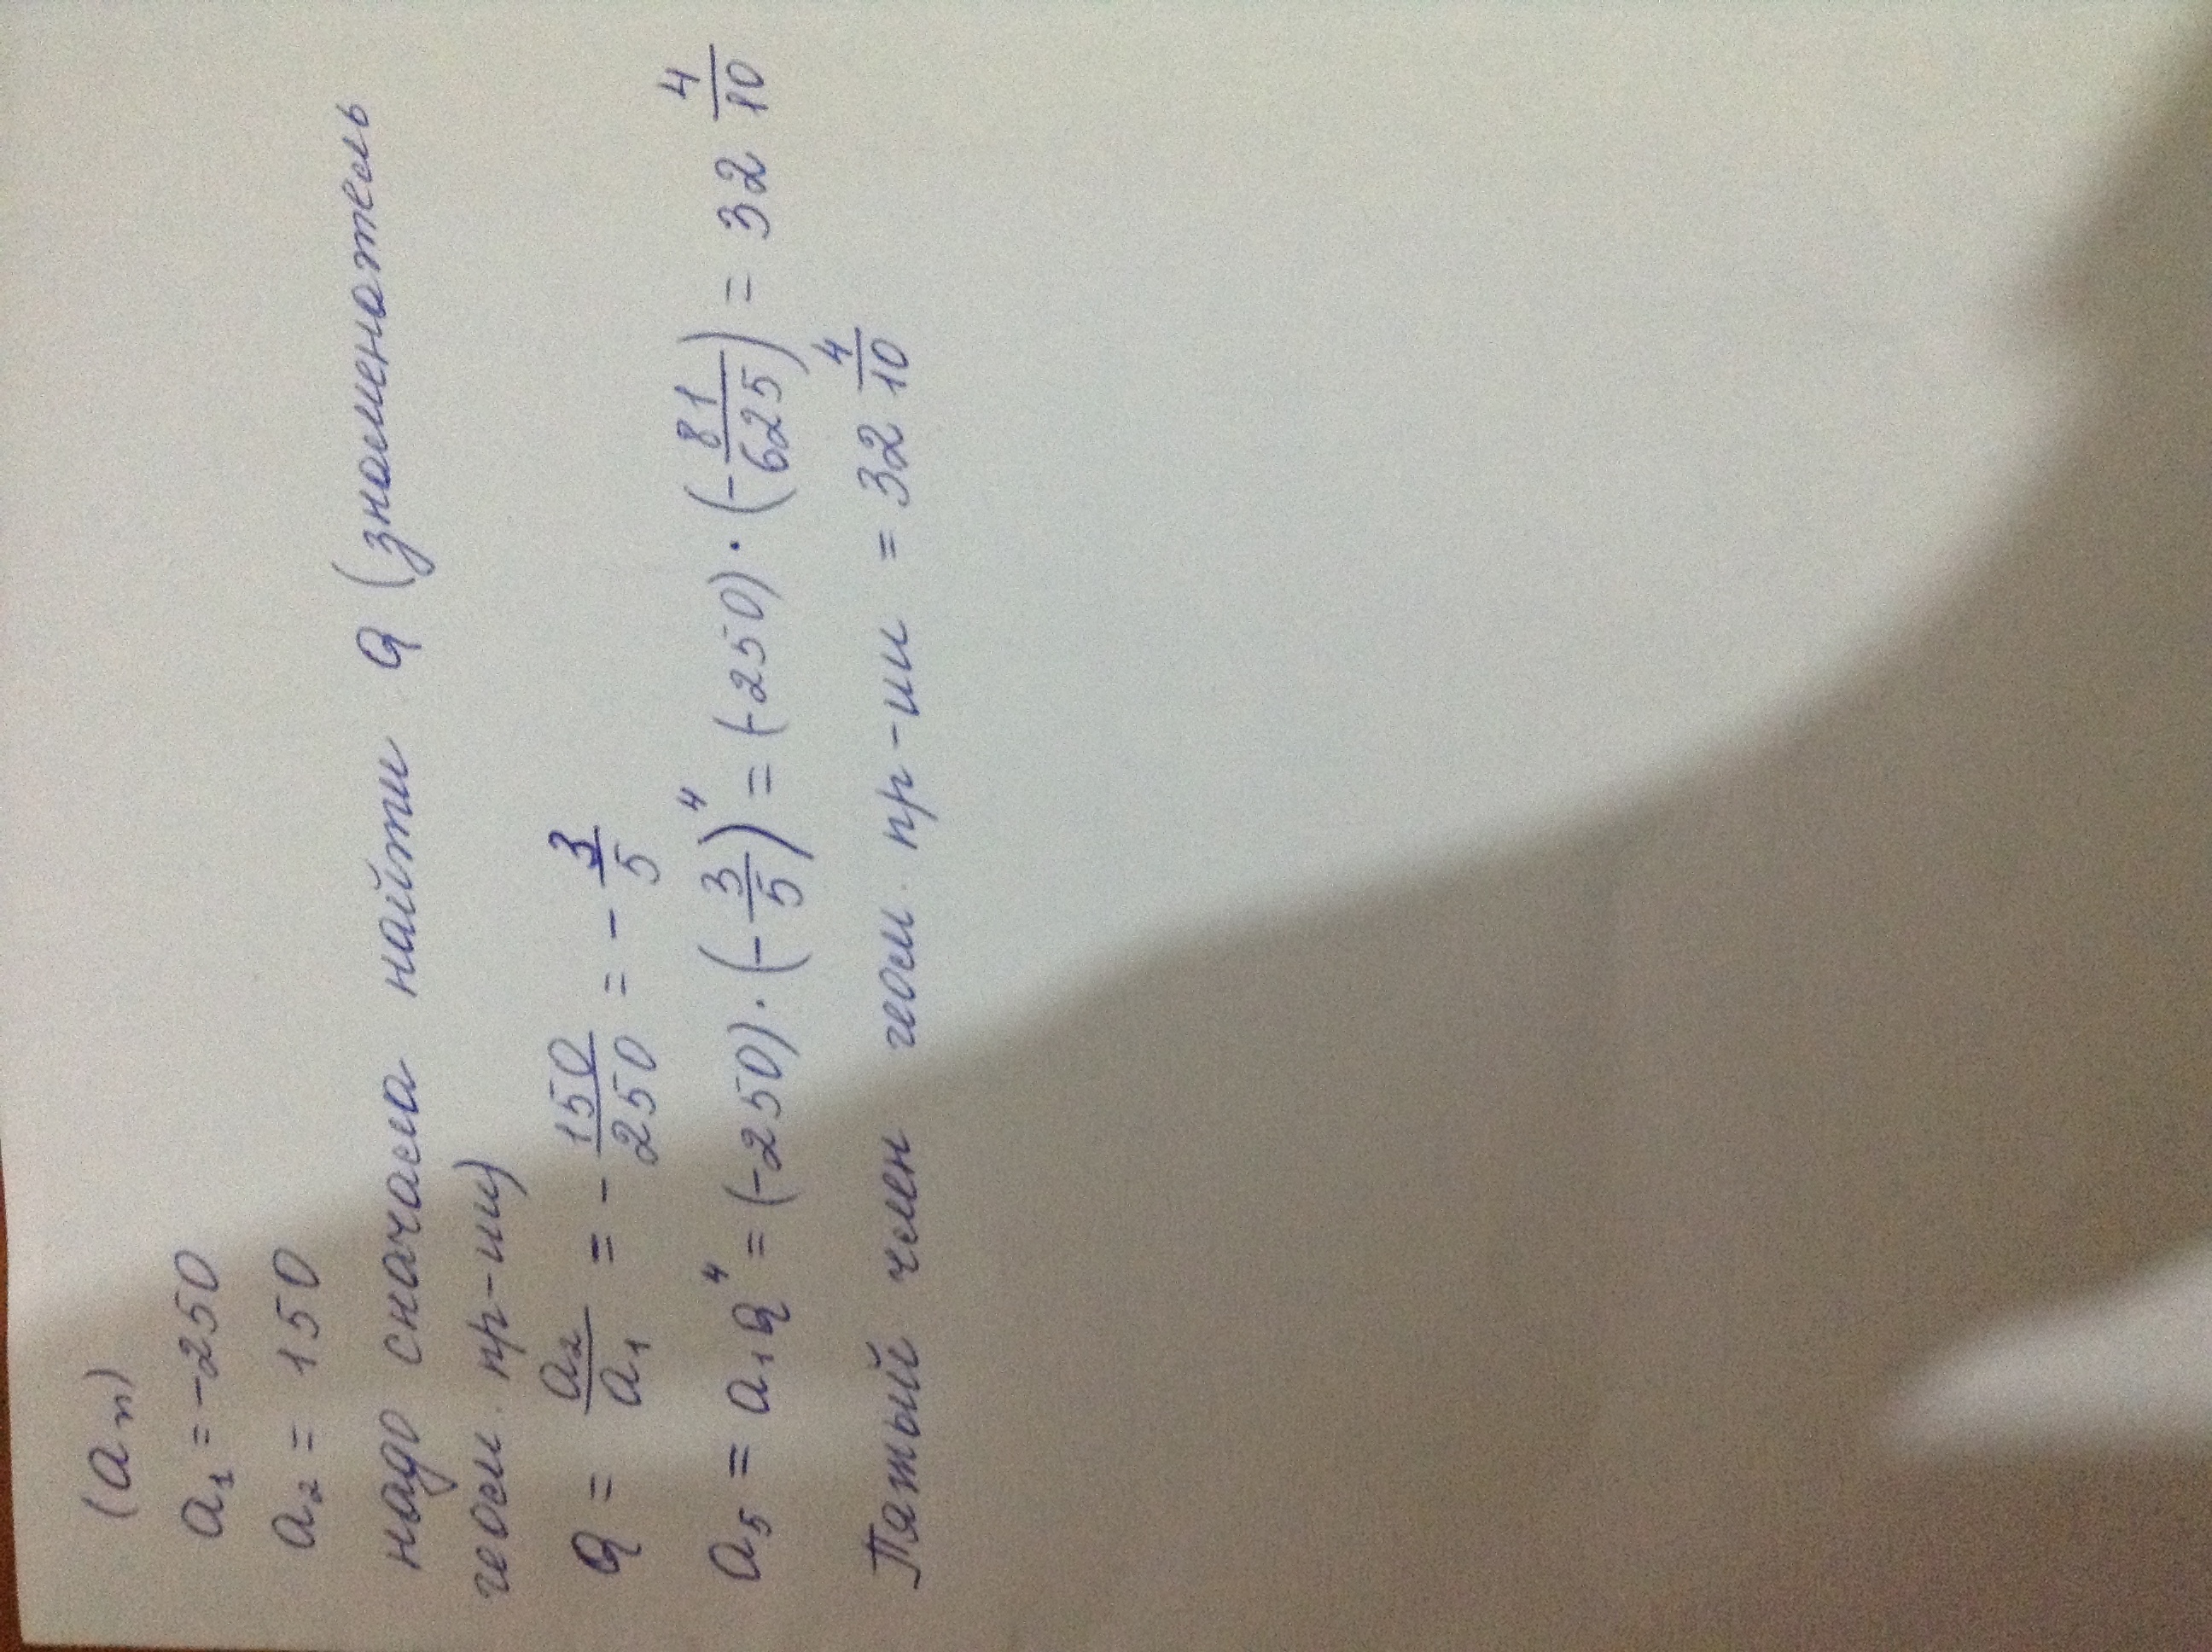 (aₙ)
a₁ = -250
a₂ = 150
надо сначала найти q (знаменатель
геом. пр-ии)
q = a₂/a₁ = - 150/250 = - 3/5
a₅ = a₁q⁴ = (-250)·(-3/5)⁴ = (-250)·(-81/625) = 32 4/10
Пятый член геом. пр-ии = 32 4/10